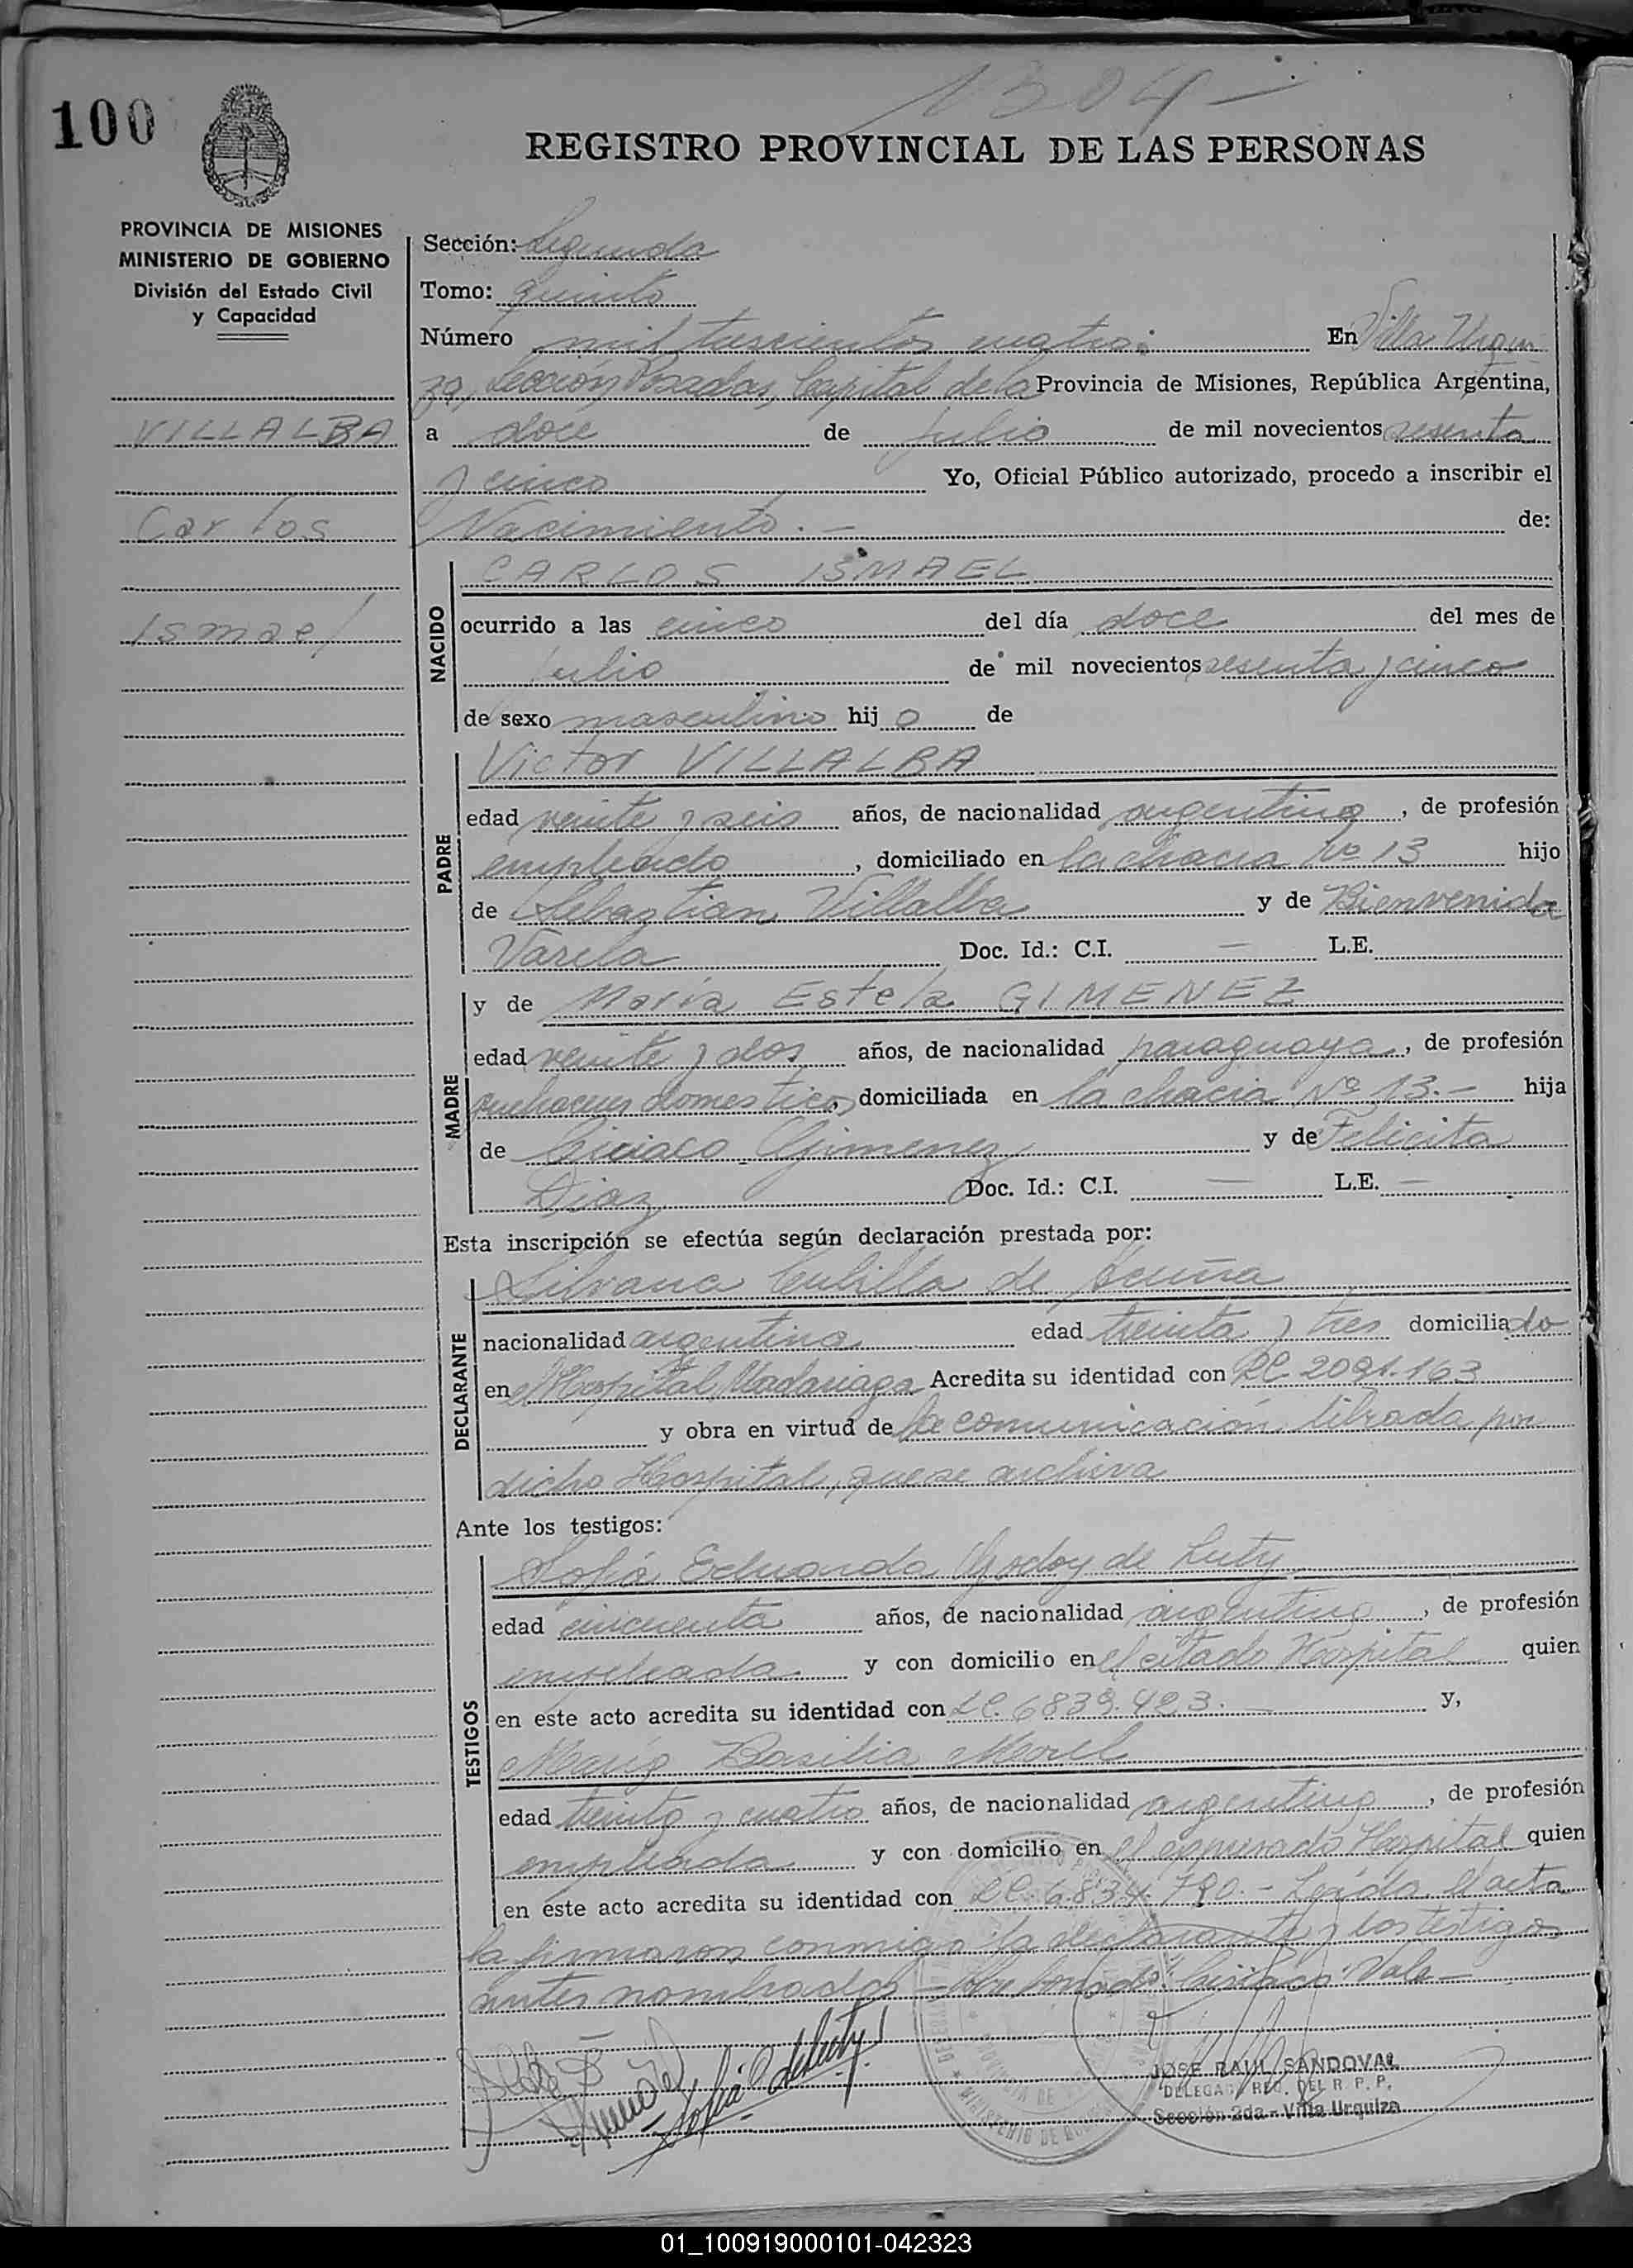 1304 -
100
REGISTRO PROVINCIAL DE LAS PERSONAS
PROVINCIA DE MISIONES
MINISTERIO DE GOBIERNO
División del Estado Civil
y Capacidad
VILLALBA
Carlos
Ismael
Sección: Segunda
Tomo: quinto
Número mil trescientos cuatro. En Villa Urqui
za, Sección Posadas, Capital de la Provincia de Misiones, República Argentina,
a doce de Julio de mil novecientos sesenta
y cinco Yo, Oficial Público autorizado, procedo a inscribir el
Nacimiento. - de:
NACIDO
CARLOS ISMAEL
ocurrido a las cinco del día doce del mes de
Julio de mil novecientos sesenta y cinco
de sexo masculino hij o de
PADRE
Victor VILLALBA
edad veinte y seis años, de nacionalidad argentina, de profesión
empleado, domiciliado en la chacra No 13 hijo
de Sebastian Villalba y de Bienvenida
Varela Doc. Id.: C.I. — L.E.
MADRE
y de María Estela GIMENEZ
edad veinte y dos años, de nacionalidad paraguaya, de profesión
quehaceres domesticos, domiciliada en la chacra No 13.- hija
de Ciriaco Gimenez y de Felicita
Diaz Doc. Id.: C.I. — L.E. —
Esta inscripción se efectúa según declaración prestada por:
DECLARANTE
Silvana de Acuña
nacionalidad argentina edad treinta y tres domiciliado
en el Hospital Madariaga Acredita su identidad con LC 2091.163
y obra en virtud de la comunicación librada por
dicho Hospital, que se archiva
Ante los testigos:
TESTIGOS
Sofía Eduarda Godoy de Luty
edad cincuenta años, de nacionalidad argentina, de profesión
empleada y con domicilio en el citado Hospital quien
en este acto acredita su identidad con LC. 6839.423. y,
María Basilia Morel
edad treinta y cuatro años, de nacionalidad argentina, de profesión
empleada y con domicilio en el expresado Hospital quien
en este acto acredita su identidad con LC. 6.834.790. - Leída el acta
la firmaron conmigo la declarante y los testigos
antes nombrados - Sobre borrado: Ciriaco: Vale -
Sofía G de Luty
JOSE RAUL SANDOVAL
DELEGADO REG. DEL R. P. P.
Sección 2da - Villa Urquiza
01_100919000101-042323